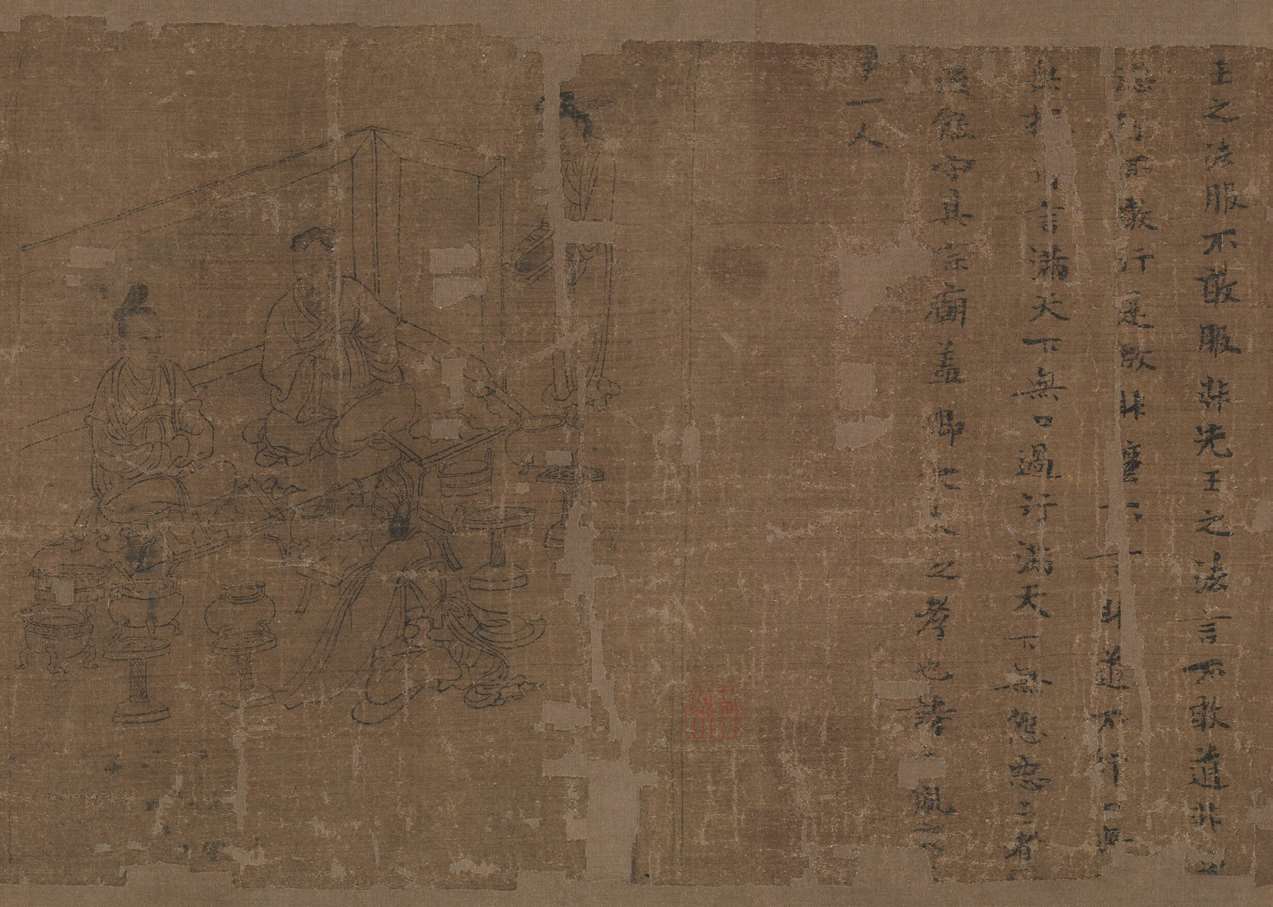 王之法服不敢服非先王之法言不敢道非
德行不敢行是故非不言非道不行口無
無擇言滿天下無口過行滿天下無怨惡三者
能守其宗廟蓋卿大夫之孝也詩夙
事一人